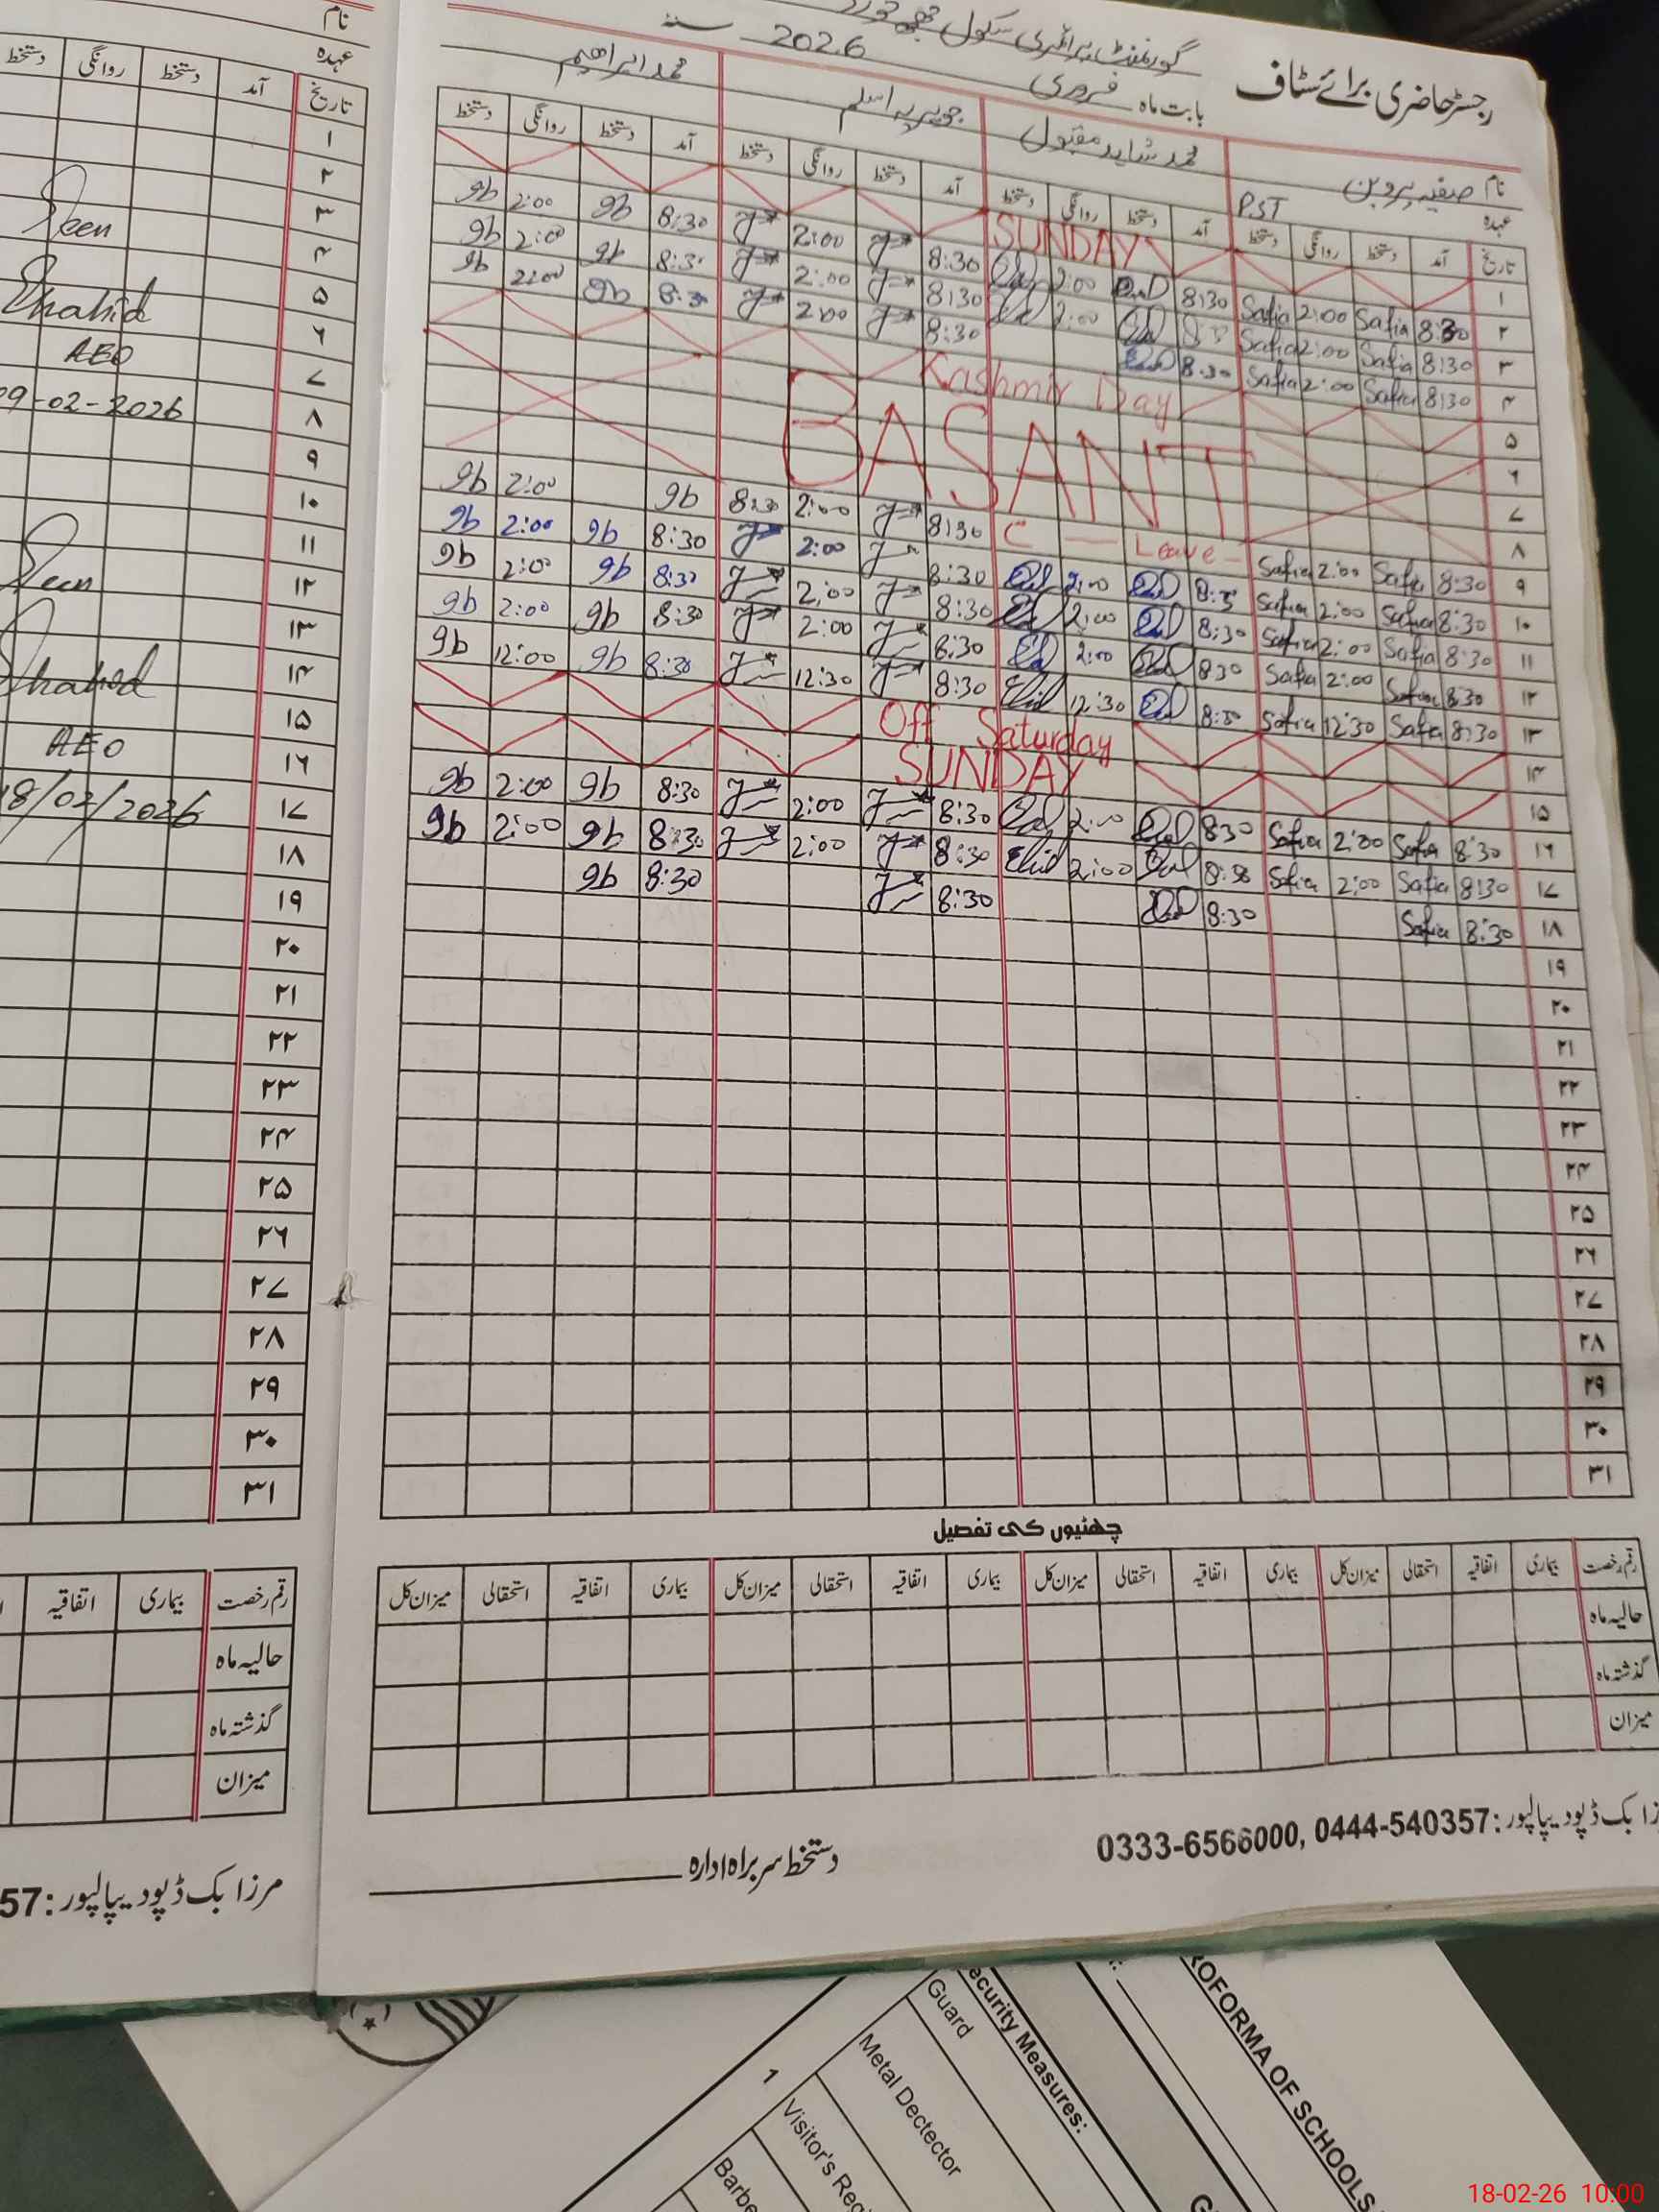 رجسٹر حاضری برائے سٹاف
گورنمنٹ پرائمری سکول
بابت ماہ فروری سنہ 2026
نام صفیہ پروین محمد شاہد مقبول جویریہ اسلم محمد ابراہیم
عہدہ PST
تاریخ آمد دستخط روانگی دستخط آمد دستخط روانگی دستخط آمد دستخط روانگی دستخط آمد دستخط روانگی دستخط
۱ SUNDAY
۲ 8:30 Safia 2:00 Safia 8:30 2:00 8:30 2:00 8:30 9b 2:00 9b
۳ 8:30 Safia 2:00 Safia 2:00 8:30 2:00 8:30 9b 2:00 9b
۴ 8:30 Safia 2:00 Safia 8:30 8:30 2:00 8:30 9b 2:00 9b
۵ Kashmir Day
۶
۷ BASANT
۸
۹ 8:30 Safia 2:00 Safia C — Leave 8:30 2:00 8:30 9b 2:00 9b
۱۰ 8:30 Safia 2:00 Safia 8:30 2:00 8:30 2:00 8:30 9b 2:00 9b
۱۱ 8:30 Safia 2:00 Safia 8:30 2:00 8:30 2:00 8:30 9b 2:00 9b
۱۲ 8:30 Safia 2:00 Safia 8:30 2:00 8:30 2:00 8:30 9b 2:00 9b
۱۳ 8:30 Safia 12:30 Safia 8:30 12:30 8:30 12:30 8:30 9b 12:00 9b
۱۴ Off Saturday
۱۵ SUNDAY
۱۶ 8:30 Safia 2:00 Safia 8:30 2:00 8:30 2:00 8:30 9b 2:00 9b
۱۷ 8:30 Safia 2:00 Safia 8:30 2:00 8:30 2:00 8:30 9b 2:00 9b
۱۸ 8:30 Safia 8:30 8:30 8:30 9b
۱۹
۲۰
۲۱
۲۲
۲۳
۲۴
۲۵
۲۶
۲۷
۲۸
۲۹
۳۰
۳۱
چھٹیوں کی تفصیل
رقم رخصت بیماری اتفاقیہ استحقاقی میزان کل بیماری اتفاقیہ استحقاقی میزان کل بیماری اتفاقیہ استحقاقی میزان کل بیماری اتفاقیہ استحقاقی میزان کل
حالیہ ماہ
گذشتہ ماہ
میزان
دستخط سربراہ ادارہ
بک ڈپو دیپالپور: 0444-540357, 0333-6566000
نام
عہدہ
تاریخ آمد دستخط روانگی دستخط
۱
۲
۳ Seen
۴
۵ Shahid
۶ AEO
۷ 09-02-2026
۸
۹
۱۰
۱۱
۱۲ Seen
۱۳
۱۴ Shahid
۱۵
۱۶ AEO
۱۷ 18/02/2026
۱۸
۱۹
۲۰
۲۱
۲۲
۲۳
۲۴
۲۵
۲۶
۲۷
۲۸
۲۹
۳۰
۳۱
رقم رخصت بیماری اتفاقیہ
حالیہ ماہ
گذشتہ ماہ
میزان
مرزا بک ڈپو دیپالپور: 57
ROFORMA OF SCHOOLS
ecurity Measures:
Guard
Metal Dectector
1
Visitor's Reg
Barbe
18-02-26 10:00